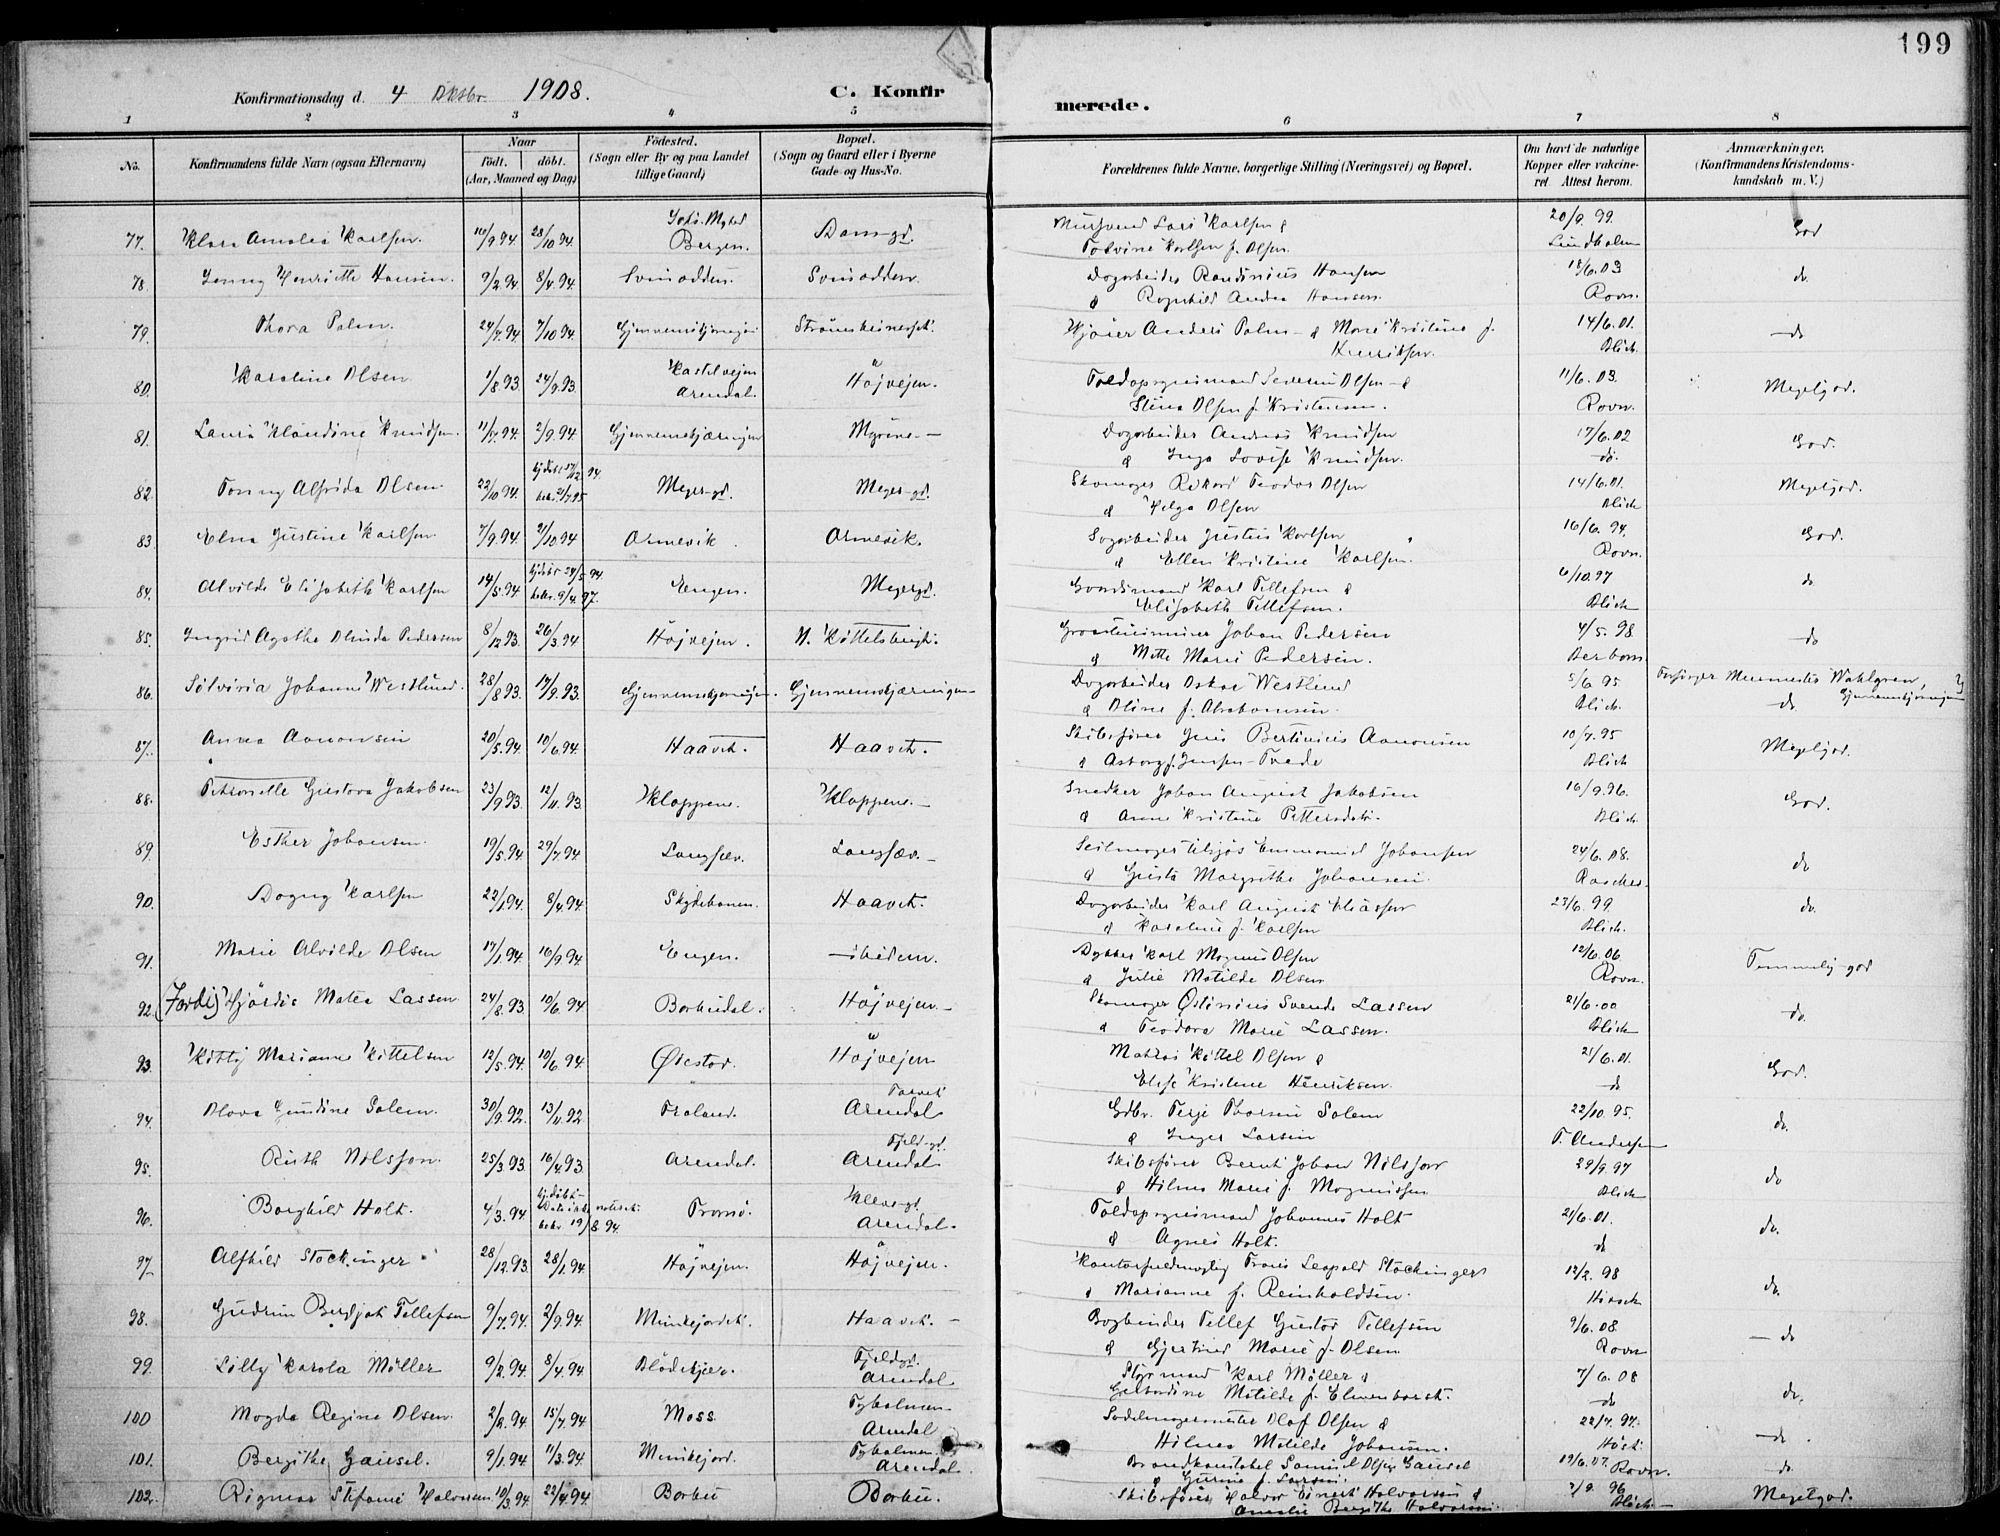 199
Konfirmationsdag d. 4 Oktbr. 1908.
C. Konfir
merede.
1 2 3 4 5 6 7 8
No.
Konfirmandens fulde Navn (ogsaa Efternavn)
Naar
født. døbt.
(Aar, Maaned og Dag)
Fødested.
(Sogn eller By og paa Landet
tillige Gaard)
Bopæl.
(Sogn og Gaard eller i Byerne
Gade og Hus-No.
Forældrenes fulde Navne, borgerlige Stilling (Næringsvei) og Bopæl.
Om havt de naturlige
Kopper eller vakcine-
ret. Attest herom.
Anmærkninger.
(Konfirmandens Kristendoms-
kundskab m. V.)
77. Klara Amalia Karlsen. 10/9 94. 28/10 94. Bergen. Mursvend Lars Karlsen & 20/9. 99. God
Karlsen f. Olsen. Lindholm
78. Jenny Henriette Hansen. 9/2.94. 8/4.94. Svinodden. Svinodden. Dagarbeider Hansen 18/6.03 do.
& Ragnhild Andrea Hansen. Rovn.
79. Thora Palm. 24/7.94 7/10 94. Kjører Anders Palm & Marie Kristine f. 14/6.01. do
Henriksen. Blich.
80. Karoline Olsen 1/8.93. 24/9.93. Kastelveien Højvejen. Toldopsynsmand Severin Olsen & 11/6.03. Megetgod.
Arendal. Stina Olsen f. Kristensen. Rovn.
81. Laura Klaudine Knudsen. 11/7.94. 2/9.94. Gjennemskjæringen Myrene. Dagarbeider Andreas Knudsen 17/6.02 God.
& Inga Lovise Knudsen. do.
82. Fanny Alfrida Olsen. 22/10 94. hjdøbt 17/12. 94. bekr. 21/7.95 Meyer-gd. Meyer-gd. Skomager Rikard Teodor Olsen 14/6.01. Megetgod.
& Helga Olsen Blich
83 Elna Justine Karlsen. 7/9.94. 21/10.94 Arnevik. Arnevik. Dagarbeider Justus Karlsen 16/6. 94. God.
& Ellen Kristine Karlsen. Rovn.
84. Alvilde Elisabeth Karlsen 14/5.94 hjdøbt 24/5 94. bekr. 9/4.97. Engen. Meyergd. Karl Tellefsen & 6/10.97 do
Elisabeth Tellefsen. Blich
85. Ingrid Agathe Olinda Pedersen 8/12 93. 26/3.94 Højvejen. N. Kittelsbugt. Johan Pedersen 4/5. 98. do
& Mette Marie Pedersen.
86. Sølviria Johanne Westlund. 28/8 93. 17/9.93. Gjennemskjæringen. Gjennemskjæringen Dagarbeider Oskar Westlund 5/6 95 Forsørger Murmester Wahlgren, Gjennemskjæringen
& Oline f. Abrahamsen. Blich. do
87. Anna Aanonsen 20/5.94. 10/6.94. Haavet. Haavet. Skibsfører Jens Bertinius Aanonsen 10/7.95 Megetgod.
& Asborg f. Jensen Blich
88. Petronelle Gustava Jakobsen 23/9.93. 12/11.93. Kloppene. Kloppene. Snedker Johan August Jakobsen 16/9.96. God.
& Anne Kristine Blich.
89. Esther Johansen. 19/5.94 29/7.94. Langsæv. Langsæv. Seilmager Emmanuel Johansen 24/6. 08. do
& Margrethe Johansen.
90. Dagny Karlsen 22/1.94. 8/4.94. Skydebanen. Haavet. Dagarbeider Karl August Eliassen 23/6. 99. do.
& Karoline f. Karlsen Blich.
91. Marie Alvilde Olsen 17/1.94. 16/9.94 Engen. ibidem. Karl Magnus Olsen 12/6.06. Temmelig god
& Julie Matilde Olsen Rovn.
92. Hjørdis Matea Lassen. 24/8.93 10/6.94 Barbudal. Højvejen. Skomager Svends Lassen 21/6.00 do.
& Teodora Marie Lassen. Blich
93. Kitty Marianne Kittelsen 12/5.94. 10/6.94 Øiestad. Højvejen Matros Kittel Olsen & 21/6.01. God.
Elise Kristine Henriksen. do
94. Gundine Solem. 30/9.92. 13/11.92 Froland. Torvet Arendal Gdbr. Terje Solem 22/10.95. do.
& Inger Larsen T. Andersen
95. Ruth Nilsson. 25/3 93. 16/4.93. Arendal. Fjeld-gd. Arendal Skibsfører Bernt Johan Nilsson 29/9.97 do
& Hilma Marie f. Magnussen Blich
96. Borghild Holt. 4/3.94 hjdøbt Dato ikke noteret. bekr. 19/8 94. Tromsø. Kleve-gt. Arendal. Toldopsynsmand Johannes Holt 21/6.01. do.
& Agnes Holt. do
97. Alfhild Stockinger 28/12.93. 28/1.94. Højvejen. Højvejen. Kontorfuldmægtig Frans Leopold Stockinger 12/2. 98 do.
& Marianne f. Reinholdsen.
98. Gudrun Bergljot Tellefsen 9/7.94. 2/9.94. Munkejordet. Haavet. Bogbinder Tellef Gustav Tellefsen 9/6.08 do
& Gjertine Marie f. Olsen Rovn
99. Lilly Karola Møller 9/2.94. 8/4.94. Blødekjær. Fjeldgd. Arendal Styrmand Karl Møller & 7/6.08 do.
Matilde f. do
100 Magda Regine Olsen. 2/2.94. 15/7.94. Moss Tyholmen Arendal Sadelmagermester Olaf Olsen & 22/7.97. do.
Matilde Johansen.
101. Bergithe Gausel. 9/1.94 11/3.94. Munkejord. Tyholmen Arendal. Brandkonstabel Samuel Olsen Gausel 19/6.07. Rovn. do
& f. Larsen.
102. Rigmor Stefanie Halvorsen 10/3.94 22/4.94. Barbu Barbu. Skibsfører Halvor Halvorsen & 2/9. 96 Megetgod.
Amalie Bergithe Halvorsen. Blich.